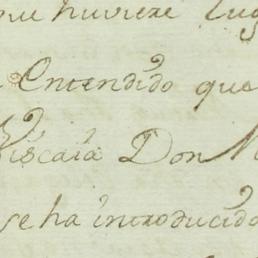 que huviere lug
Entendido que
Viscaia Don M
se ha introducido